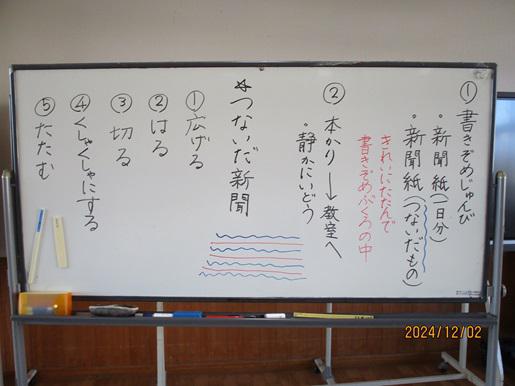 ①書きぞめじゅんび
・新聞紙(一日分)
・新聞紙(つないだもの)
きれいにたたんで
書きぞめぶくろの中
②本かり→教室へ
・静かにいどう
☆つないだ新聞
①広げる
②はる
③切る
④くしゃくしゃにする
⑤たたむ
2024/12/02